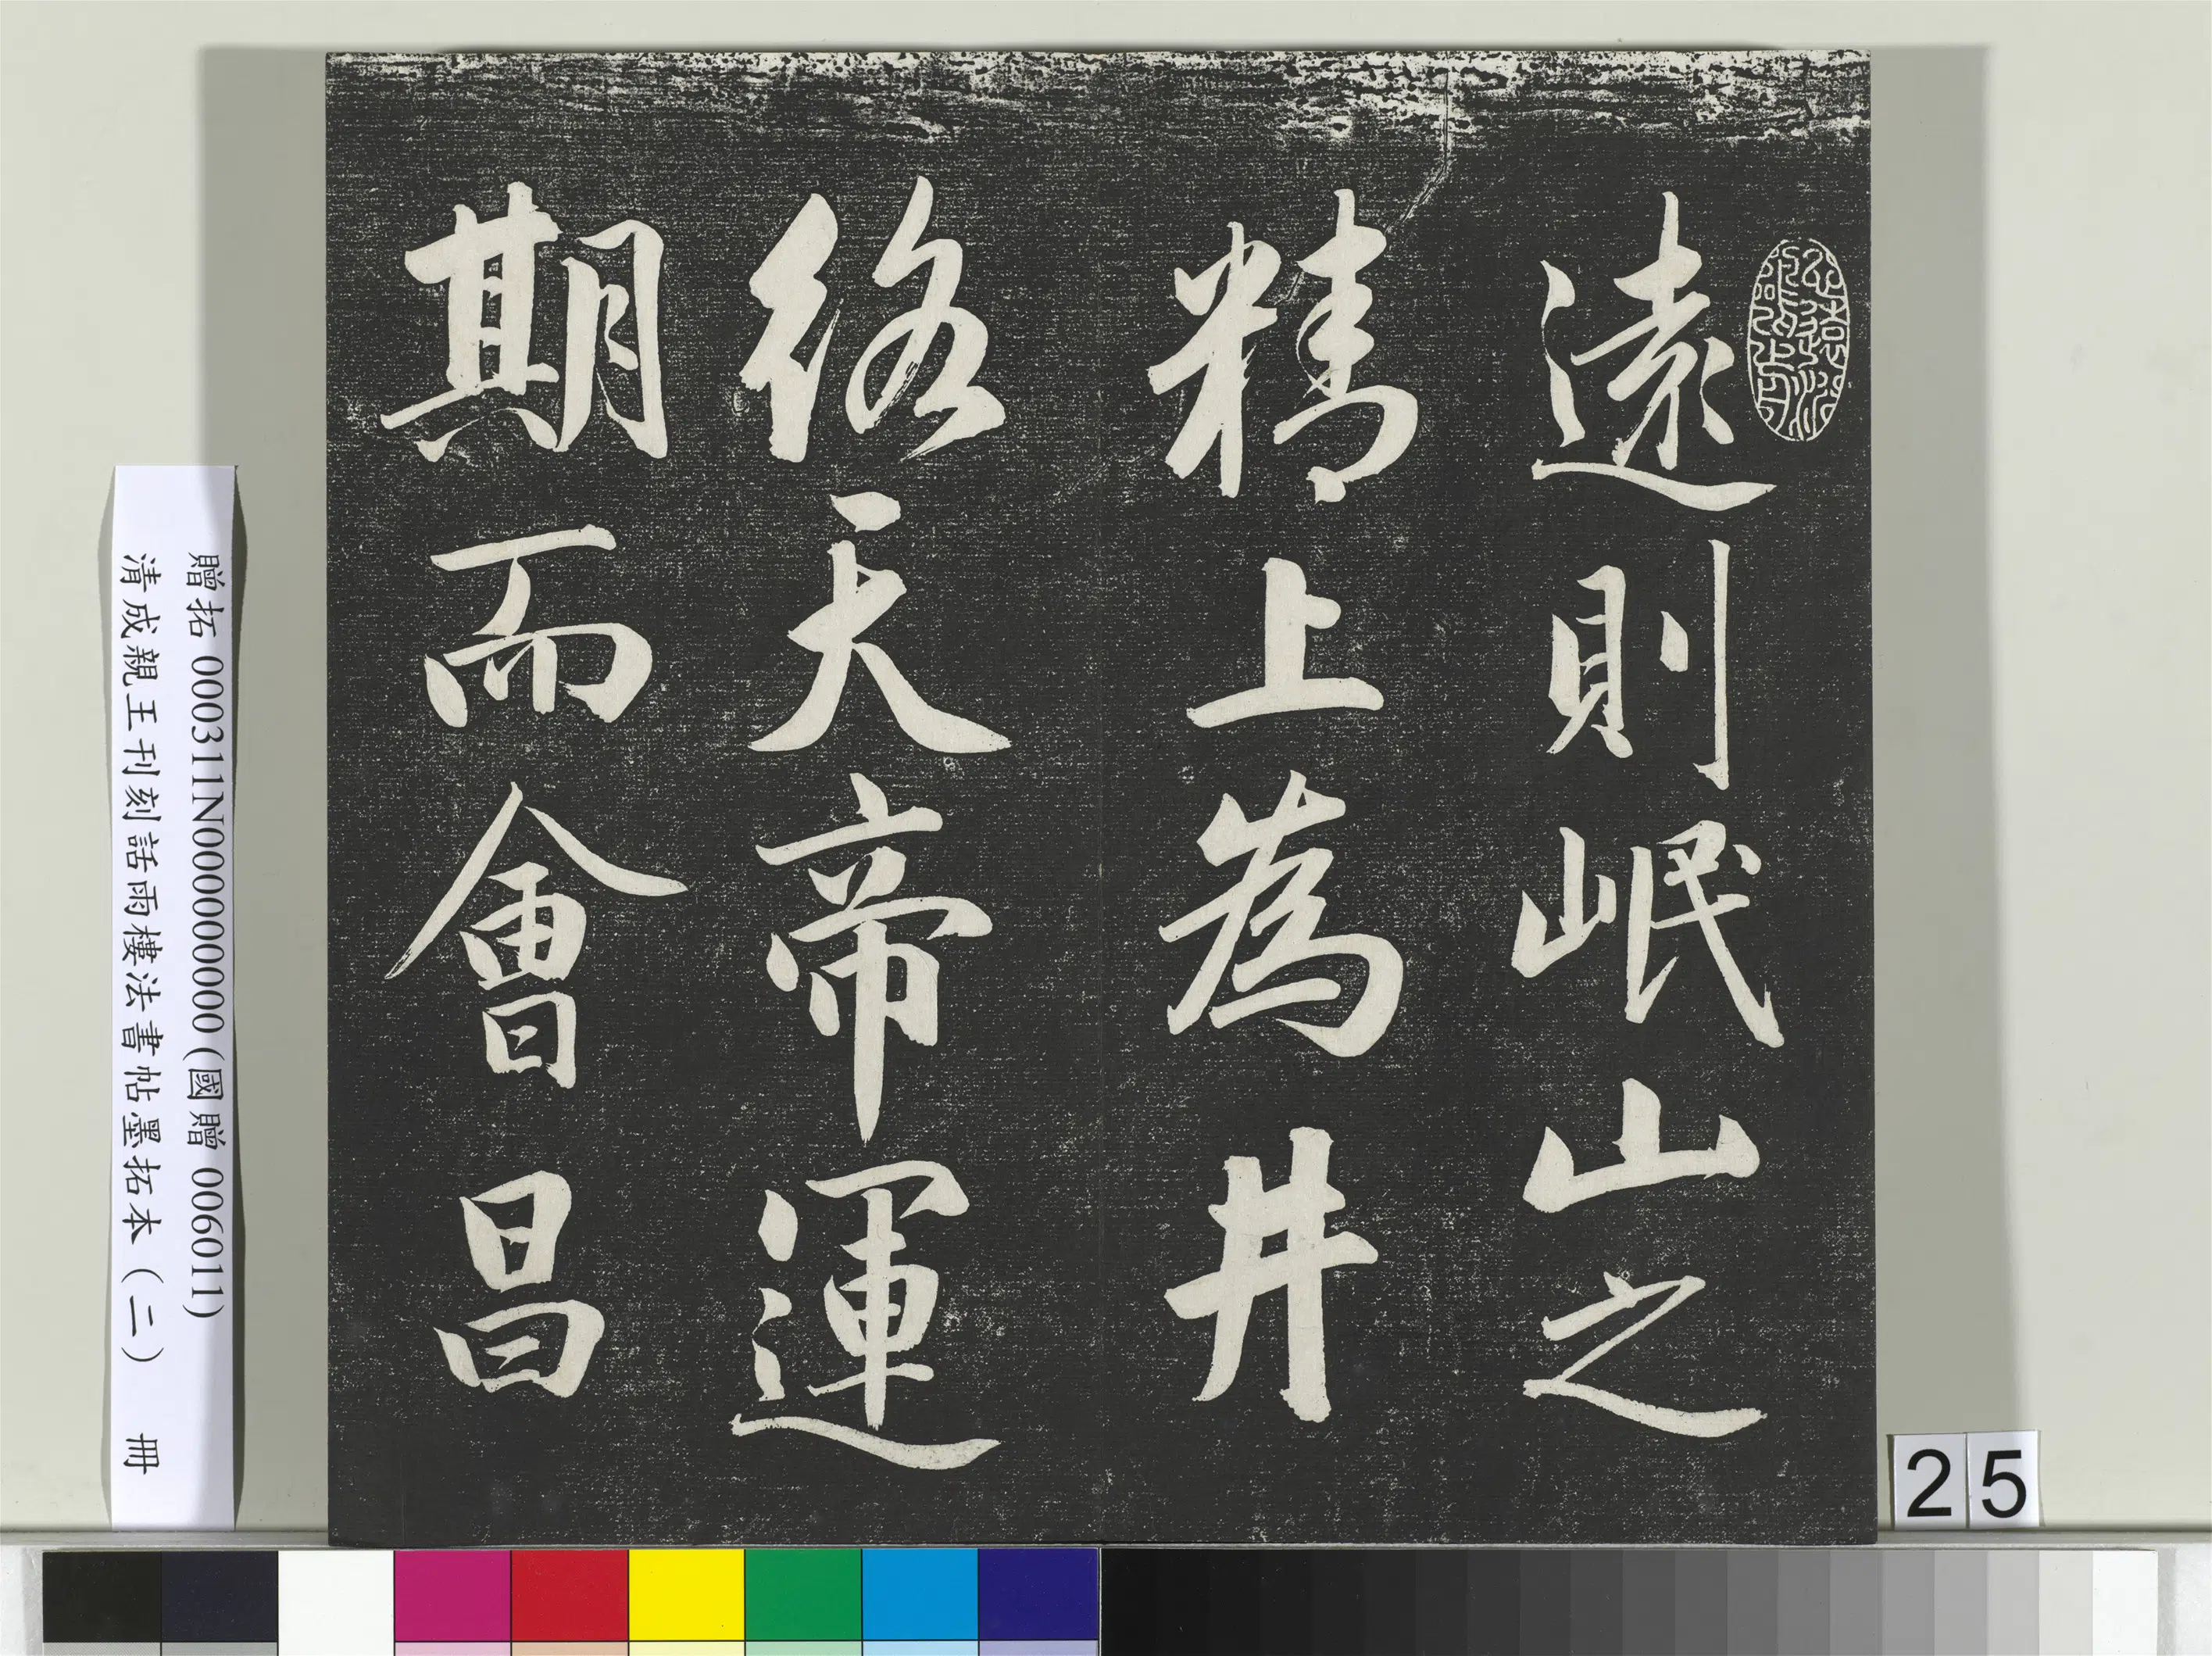 遠則岷山之
精上為井
絡天帝運
期而會昌
贈拓 000311N000000000(國贈 006011)
清成親王刊刻話雨樓法書帖墨拓本(二) 冊
25